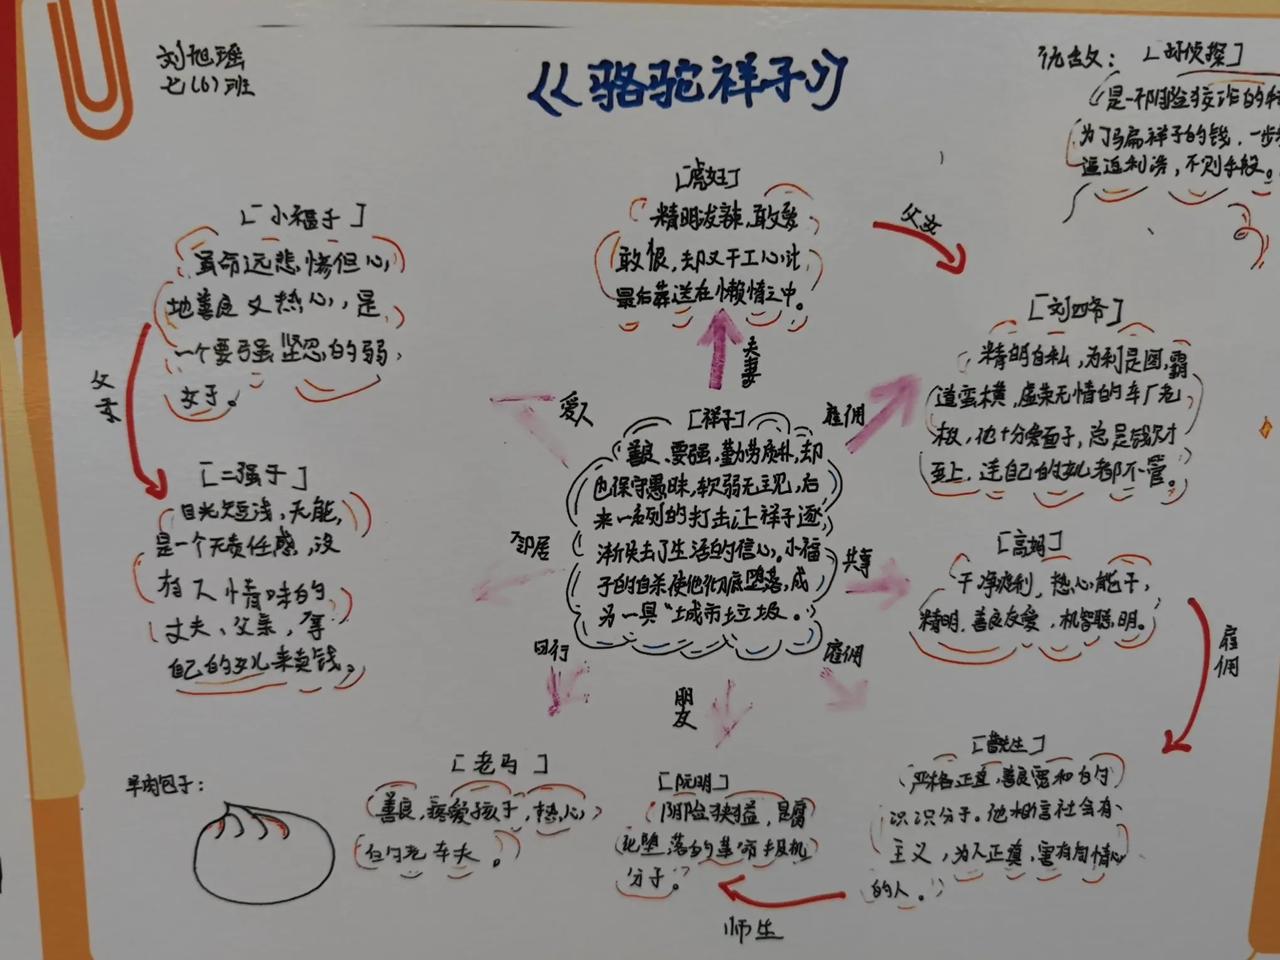 刘旭瑶
七(6)班
《骆驼祥子》
仇敌：[孙侦探]
是一个阴险狡诈的
为了骗祥子的钱，一步
逼近利诱，不则手段。
[虎妞]
精明泼辣，敢爱
敢恨，却又于工心计
最后葬送在懒惰之中。
父女
[小福子]
虽命运悲惨但心
地善良又热心，是
一个要强坚忍的弱
女子。
父
夫妻
爱人
雇佣
[刘四爷]
精明自私，为利是图，霸
道蛮横，虚荣无情的车厂老
板，他十分爱面子，总是钱财
至上，连自己的女儿都不管。
[祥子]
善良、要强，勤劳质朴，却
也保守愚昧，软弱无主见，后
来一系列的打击让祥子逐
渐失去了生活的信心。小福
子的自杀使他彻底堕落，成
为一具"城市垃圾"。
[二强子]
目光短浅，无能，
是一个无责任感，没
有人情味的
丈夫、父亲，等
自己的女儿来卖钱。
邻居
共事
[高妈]
干净利利，热心能干，
精明、善良友爱，机智聪明。
雇佣
同行
朋友
雇佣
[曹先生]
严格正直，善良宽和的
识识分子。他相信社会
主义，为人正直，富有同情心
的人。
[老马]
善良，疼爱孩子，热心
的老车夫。
[阮明]
阴险狭益，是腐
化堕落的革命投机
分子。
师生
羊肉包子：